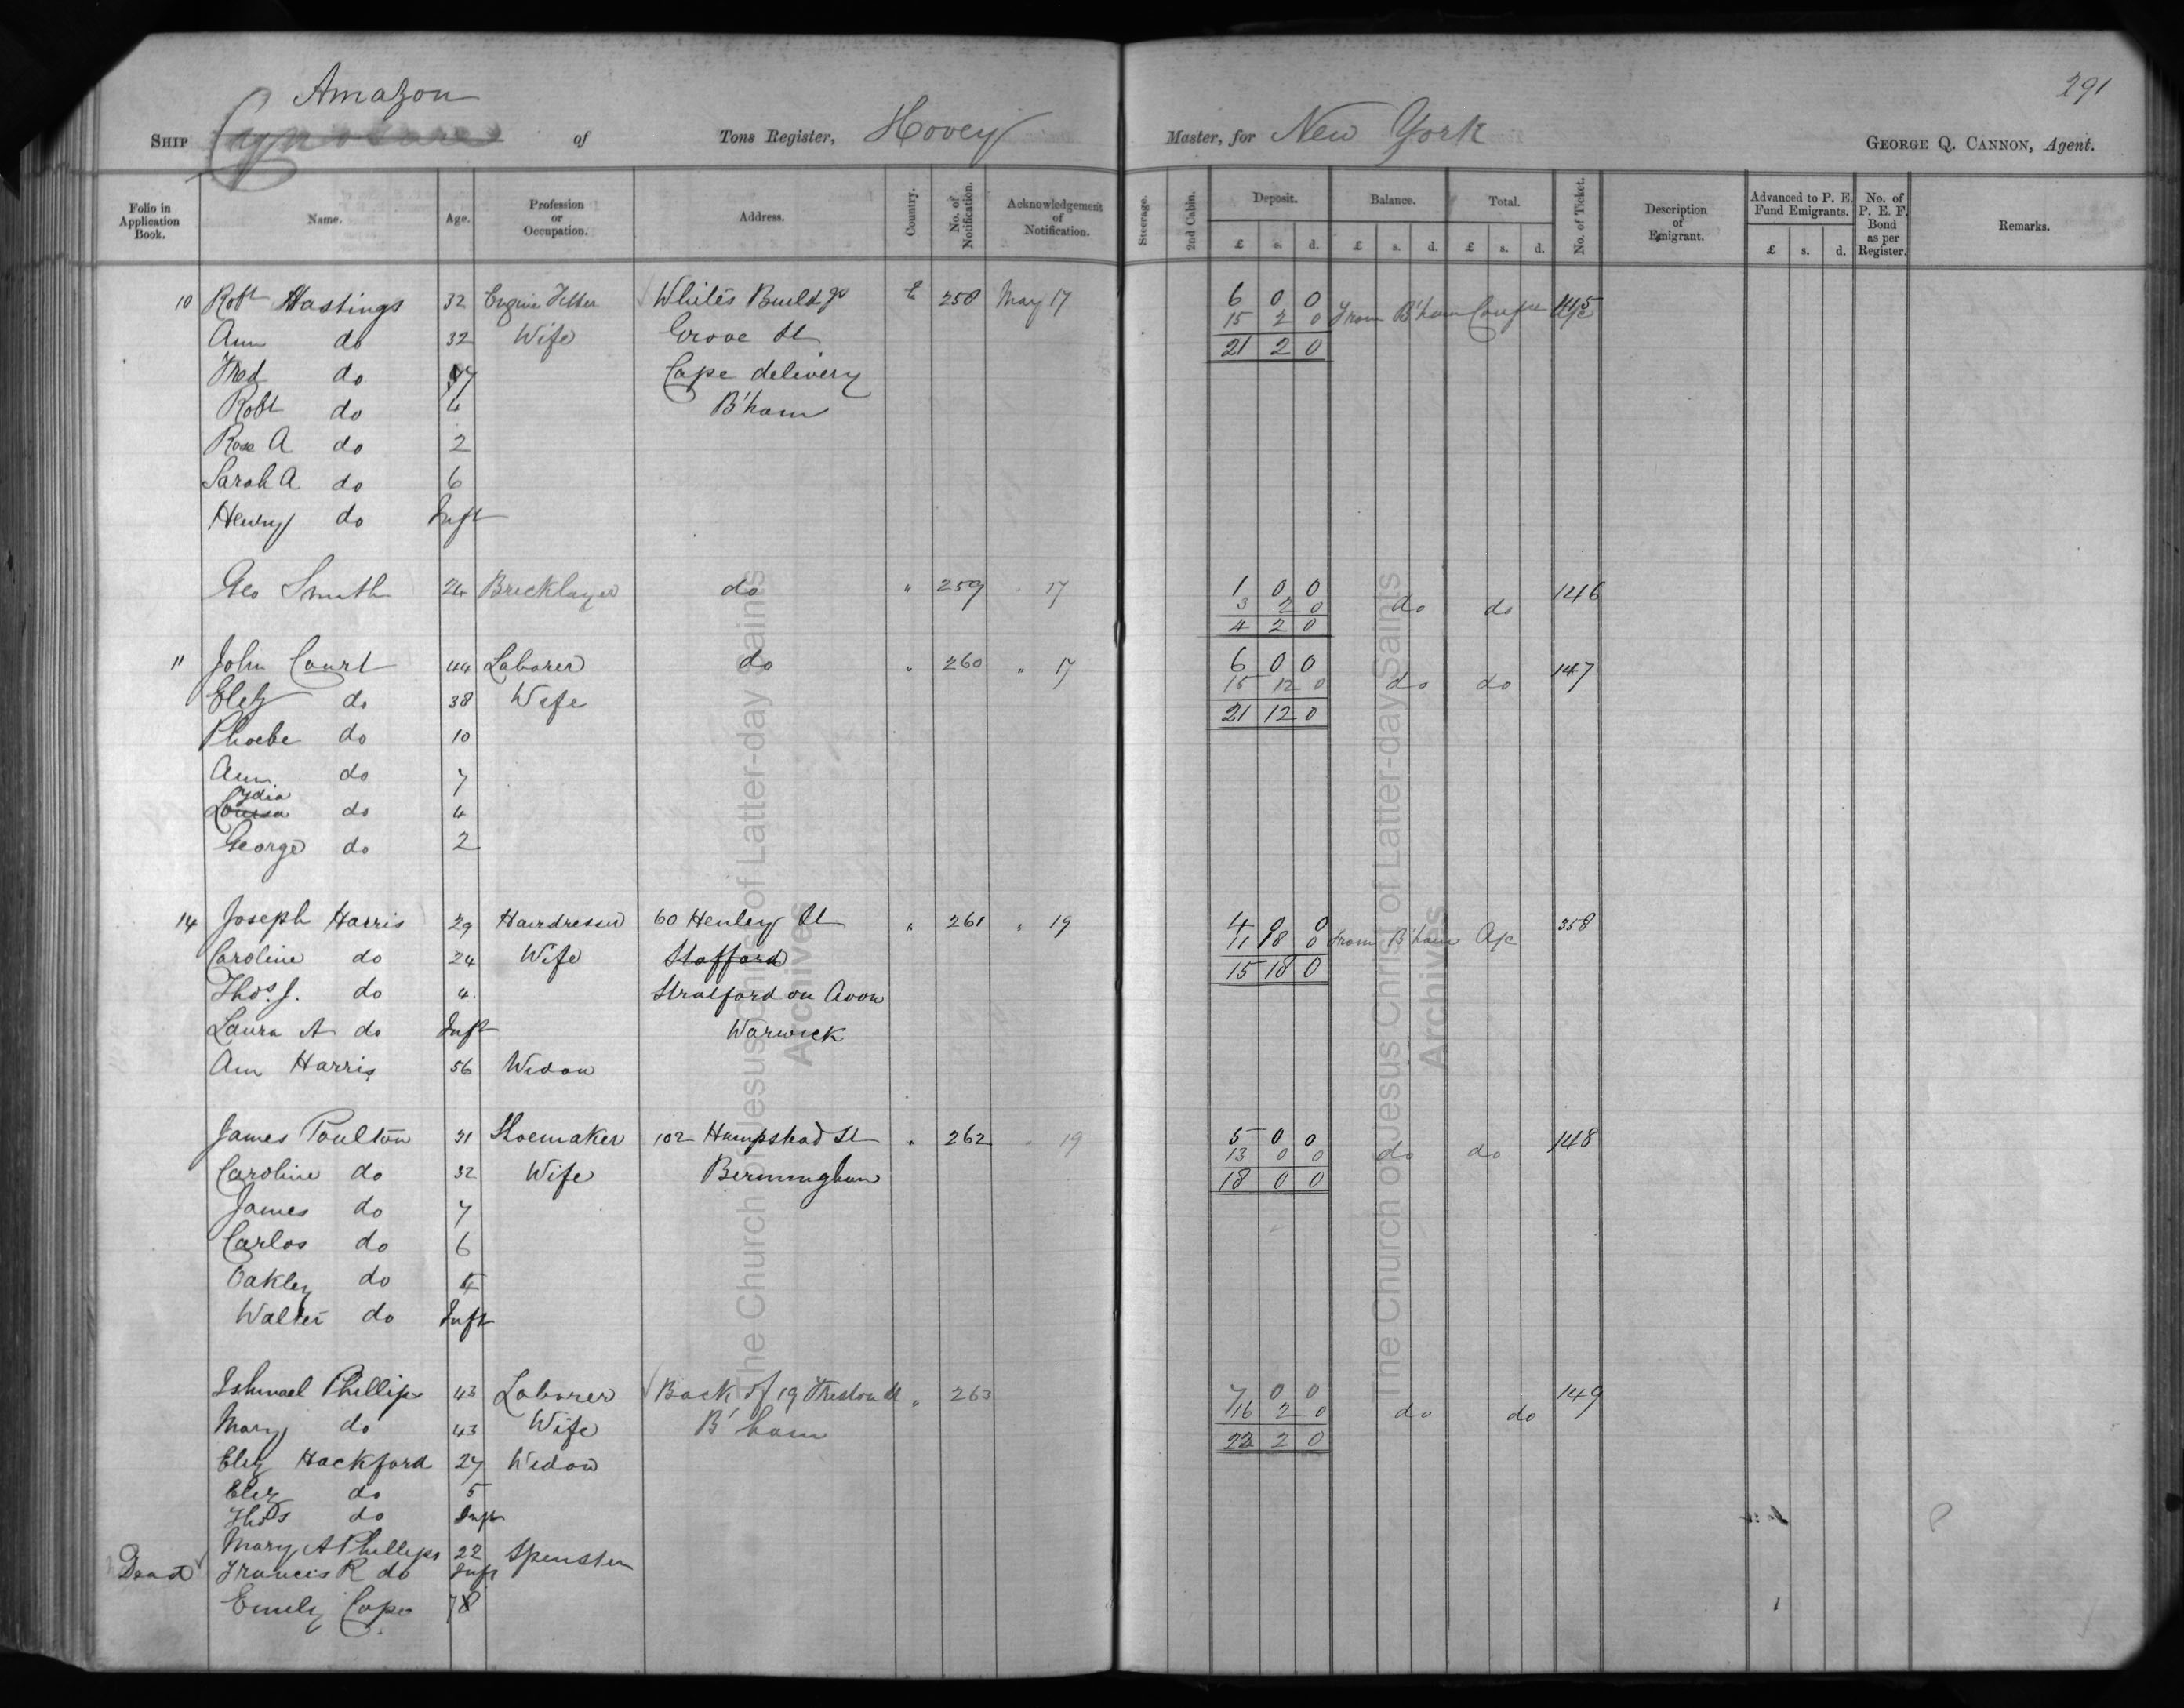 291
Amazon
SHIP Cynosure of Tons Register, Hovey Master, for New York GEORGE Q. CANNON, Agent.
Folio in Application Book. Name. Age. Profession or Occupation. Address. Country. No. of Notification. Acknowledgement of Notification. Steerage. 2nd Cabin. Deposit. Balance. Total. No. of Ticket. Description of Emigrant. Advanced to P. E. Fund Emigrants. No. of P. E. F. Bond as per Register. Remarks.
£ s. d. £ s. d. £ s. d. £ s. d.
10 Robt Hastings 32 Engine Fitter White's Buildgs E 258 May 17 6 0 0
15 2 0 From B'ham Confce 145
Ann do 32 Wife Grove St 21 2 0
Fred do 7 Cape delivery
Robt do 4 B'ham
Rose A do 2
Sarah A do 6
Henry do Inft
Geo Smith 24 Bricklayer do " 259 " 17 1 0 0 146
3 2 0 do do
4 2 0
11 John Court 44 Laborer do " 260 " 17 6 0 0 147
15 12 0 do do
Eliz do 38 Wife 21 12 0
Phoebe do 10
Ann do 7
ydia
Louisa do 4
George do 2
14 Joseph Harris 29 Hairdresser 60 Henley St " 261 " 19 4 0 0 358
11 18 0 From B'ham A/c
Caroline do 24 Wife Stafford 15 18 0
Thos. J. do 4 Stratford on Avon
Laura A do Inft Warwick
Ann Harris 56 Widow
James Poulton 31 Shoemaker 102 Hampstead St " 262 " 19 5 0 0 148
13 0 0 do do
Caroline do 32 Wife Birmingham 18 0 0
James do 7
Carlos do 6
Oakley do 4
Walter do Inft
Ishmael Phillips 43 Laborer Back of 19 St " 263 7 0 0 149
16 2 0 do do
Mary do 43 Wife B'ham 23 2 0
Eliz Hackford 27 Widow
Eliz do 5
Thos do Inft
Mary A Phillips 22 Spinster
Dead Francis R do Inft
Emily Cope 8
The Church of Jesus Christ of Latter-day Saints
Archives
The Church of Jesus Christ of Latter-day Saints
Archives